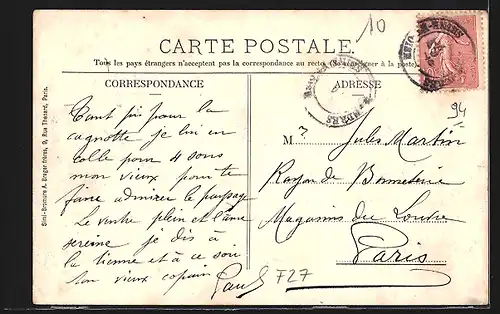 10
CARTE POSTALE.
Tous les pays étrangers n'acceptent pas la correspondance au recto (Se renseigner à la poste).
CORRESPONDANCE
ADRESSE
Tant pis pour la
cagnotte je lui en
colle pour 4 sous
mon vieux pour te
faire admirer le paysage
Le ventre plein et l'âme
sereine je dis à
la tienne et à ce soir
Ton vieux copain
Paul
94
M r Jules Martin
Rayon de Bonneterie
Magasins du Louvre
Paris
F27
Simili-Bromure A. Breger frères, 9, Rue Thénard, Paris.